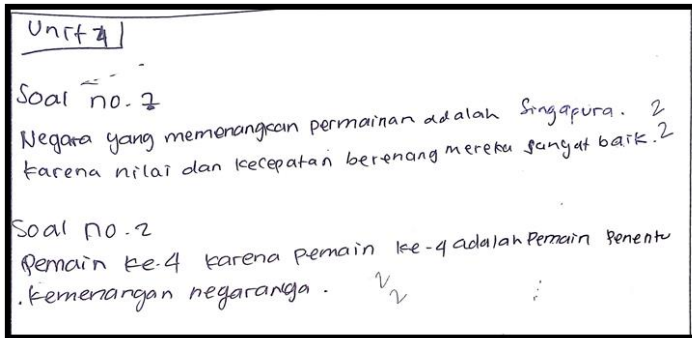 Unit 4
Soal no. 1
Negara yang memenangkan permainan adalah Singapura. 2
karena nilai dan kecepatan berenang mereka sangat baik. 2
Soal no. 2
Pemain ke-4 karena pemain ke-4 adalah Pemain Penentu
kemenangan negaranya. 2 2